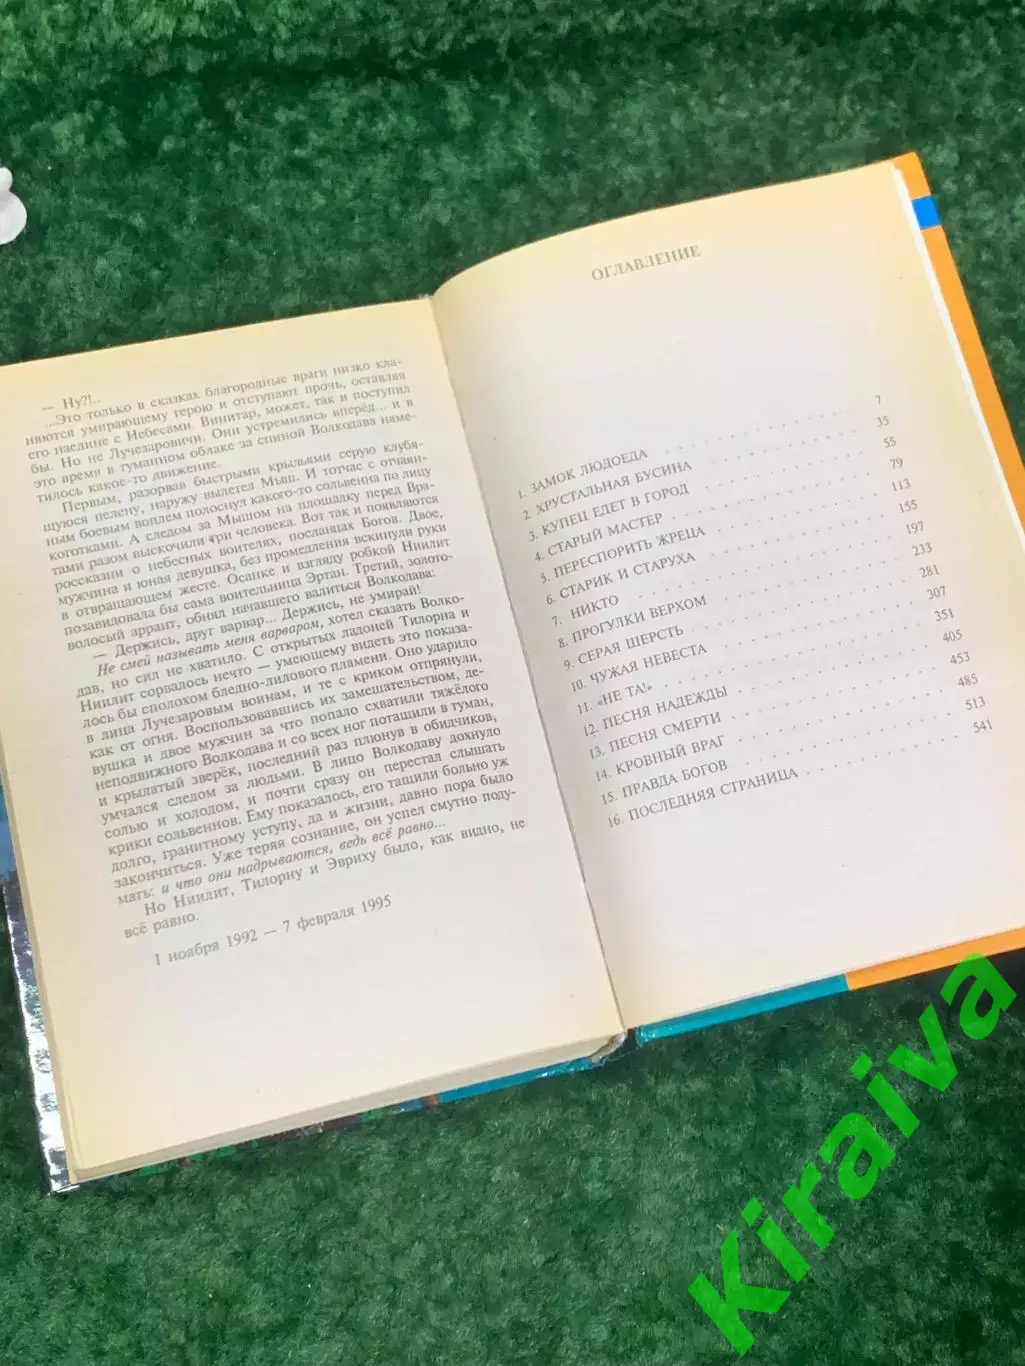 — Ну?!..
...Это только в сказках благородные враги низко кла-
няются умирающему герою и отступают прочь, оставляя
его наедине с Небесами. Винитар, может, так и поступил
бы. Но не Лучезаровичи. Они устремились вперёд... и в
это время в туманном облаке за спиной Волкодава наме-
тилось какое-то движение.
Первым, разорвав быстрыми крыльями серую клубя-
щуюся пелену, наружу вылетел Мыш. И тотчас с отчаян-
ным боевым воплем полоснул какого-то сольвенна по лицу
коготками. А следом за Мышом на площадку перед Вра-
тами разом выскочили три человека. Вот так и появляются
россказни о небесных воителях, посланцах Богов. Двое,
мужчина и юная девушка, без промедления вскинули руки
в отвращающем жесте. Осанке и взгляду робкой Ниилит
позавидовала бы сама воительница Эртан. Третий, золото-
волосый аррант, обнял начавшего валиться Волкодава:
— Держись, друг варвар... Держись, не умирай!
Не смей называть меня варваром, хотел сказать Волко-
дав, но сил не хватило. С открытых ладоней Тилорна и
Ниилит сорвалось нечто — умеющему видеть это показа-
лось бы сполохом бледно-лилового пламени. Оно ударило
в лица Лучезаровым воинам, и те с криком отпрянули,
как от огня. Воспользовавшись их замешательством, де-
вушка и двое мужчин за что попало схватили тяжёлого
неподвижного Волкодава и со всех ног потащили в туман,
и крылатый зверёк, последний раз плюнув в обидчиков,
умчался следом за людьми. В лицо Волкодаву дохнуло
солью и холодом, и почти сразу он перестал слышать
крики сольвеннов. Ему показалось, его тащили больно уж
долго, гранитному уступу, да и жизни, давно пора было
закончиться. Уже теряя сознание, он успел смутно поду-
мать: и что они надрываются, ведь всё равно...
Но Ниилит, Тилорну и Эвриху было, как видно, не
всё равно.
1 ноября 1992 — 7 февраля 1995
ОГЛАВЛЕНИЕ
1. ЗАМОК ЛЮДОЕДА . . . . . . . . . 7
2. ХРУСТАЛЬНАЯ БУСИНА . . . . . . . . . 35
3. КУПЕЦ ЕДЕТ В ГОРОД . . . . . . . . . 55
4. СТАРЫЙ МАСТЕР . . . . . . . . . 79
5. ПЕРЕСПОРИТЬ ЖРЕЦА . . . . . . . . . 113
6. СТАРИК И СТАРУХА . . . . . . . . . 155
7. НИКТО . . . . . . . . . 197
8. ПРОГУЛКИ ВЕРХОМ . . . . . . . . . 233
9. СЕРАЯ ШЕРСТЬ . . . . . . . . . 281
10. ЧУЖАЯ НЕВЕСТА . . . . . . . . . 307
11. «НЕ ТА!» . . . . . . . . . 351
12. ПЕСНЯ НАДЕЖДЫ . . . . . . . . . 405
13. ПЕСНЯ СМЕРТИ . . . . . . . . . 453
14. КРОВНЫЙ ВРАГ . . . . . . . . . 485
15. ПРАВДА БОГОВ . . . . . . . . . 513
16. ПОСЛЕДНЯЯ СТРАНИЦА . . . . . . . . . 541
Kiraiva